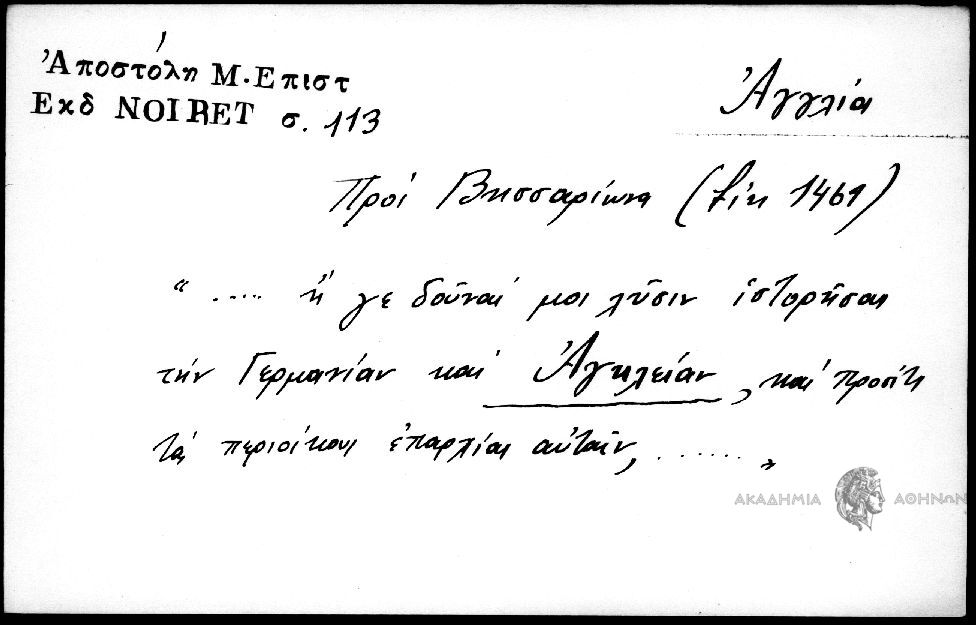 Ἀποστόλη Μ. Επιστ
Εκδ NOIRET σ. 113
Ἀγγλία
Πρὸς Βησσαρίωνα ( 1469)
“ ..... ἤ γε δοῦναί μοι λῦσιν ἱστορῆσαι
τὴν Γερμανίαν καὶ Ἀγκλείαν, καὶ προσέτι
τὰς περιοίκους ἐπαρχίας αὐταῖν, ........ „
ΑΚΑΔΗΜΙΑ ΑΘΗΝΩΝ